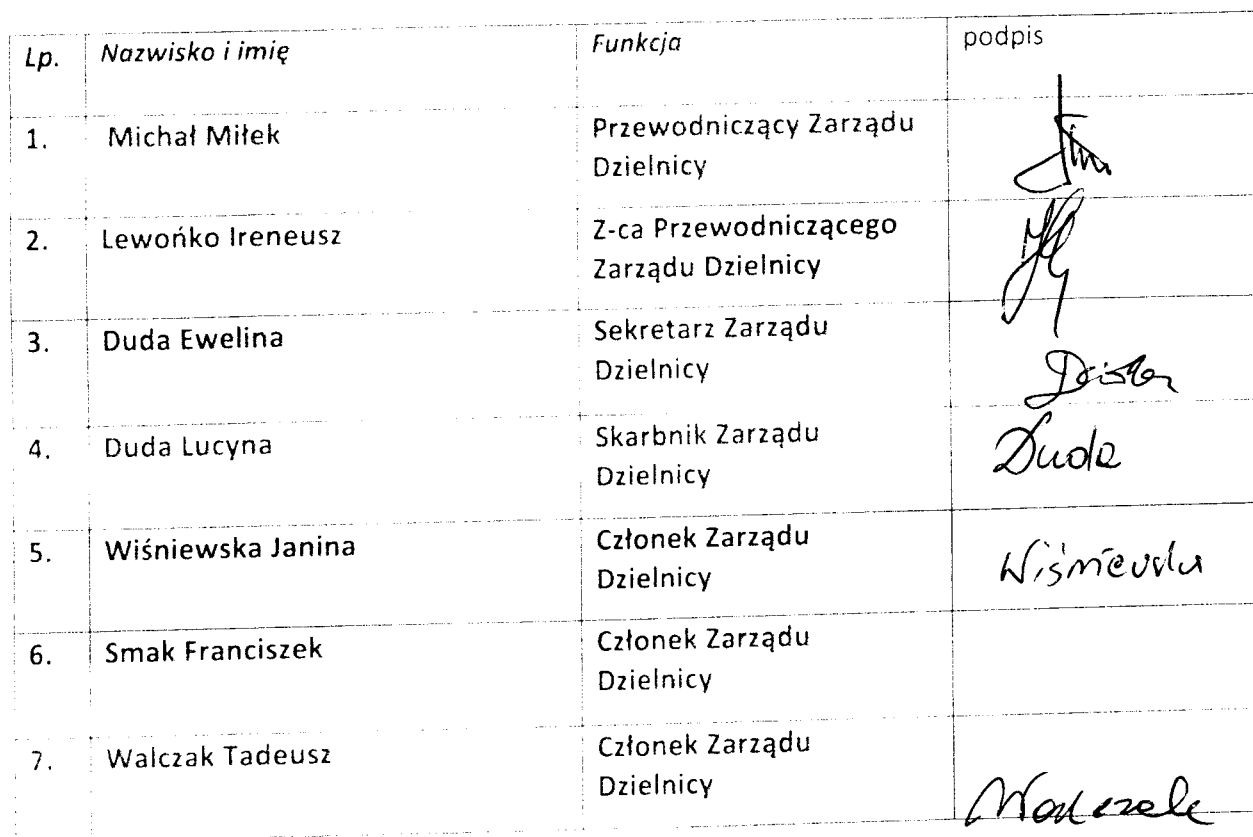 Lp. Nazwisko i imię Funkcja podpis
1. Michał Miłek Przewodniczący Zarządu
Dzielnicy
2. Lewońko Ireneusz Z-ca Przewodniczącego
Zarządu Dzielnicy
3. Duda Ewelina Sekretarz Zarządu
Dzielnicy
4. Duda Lucyna Skarbnik Zarządu
Dzielnicy Duda
5. Wiśniewska Janina Członek Zarządu
Dzielnicy Wiśniewska
6. Smak Franciszek Członek Zarządu
Dzielnicy
7. Walczak Tadeusz Członek Zarządu
Dzielnicy Walczak